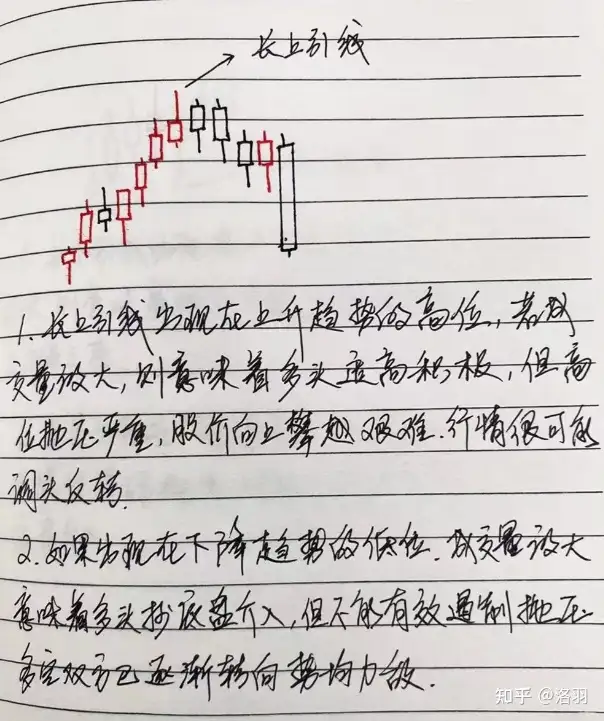 长上引线
1. 长上引线出现在上升趋势的高位,若成
交量放大,则意味着多头追高积极,但高
位抛压严重,股价向上攀越艰难.行情很可能
调头反转.
2.如果出现在下降趋势的低位.成交量放大
意味着多头抄底盘介入,但不能有效遏制抛压
多空双方已逐渐转向势均力敌.
知乎 @洛羽